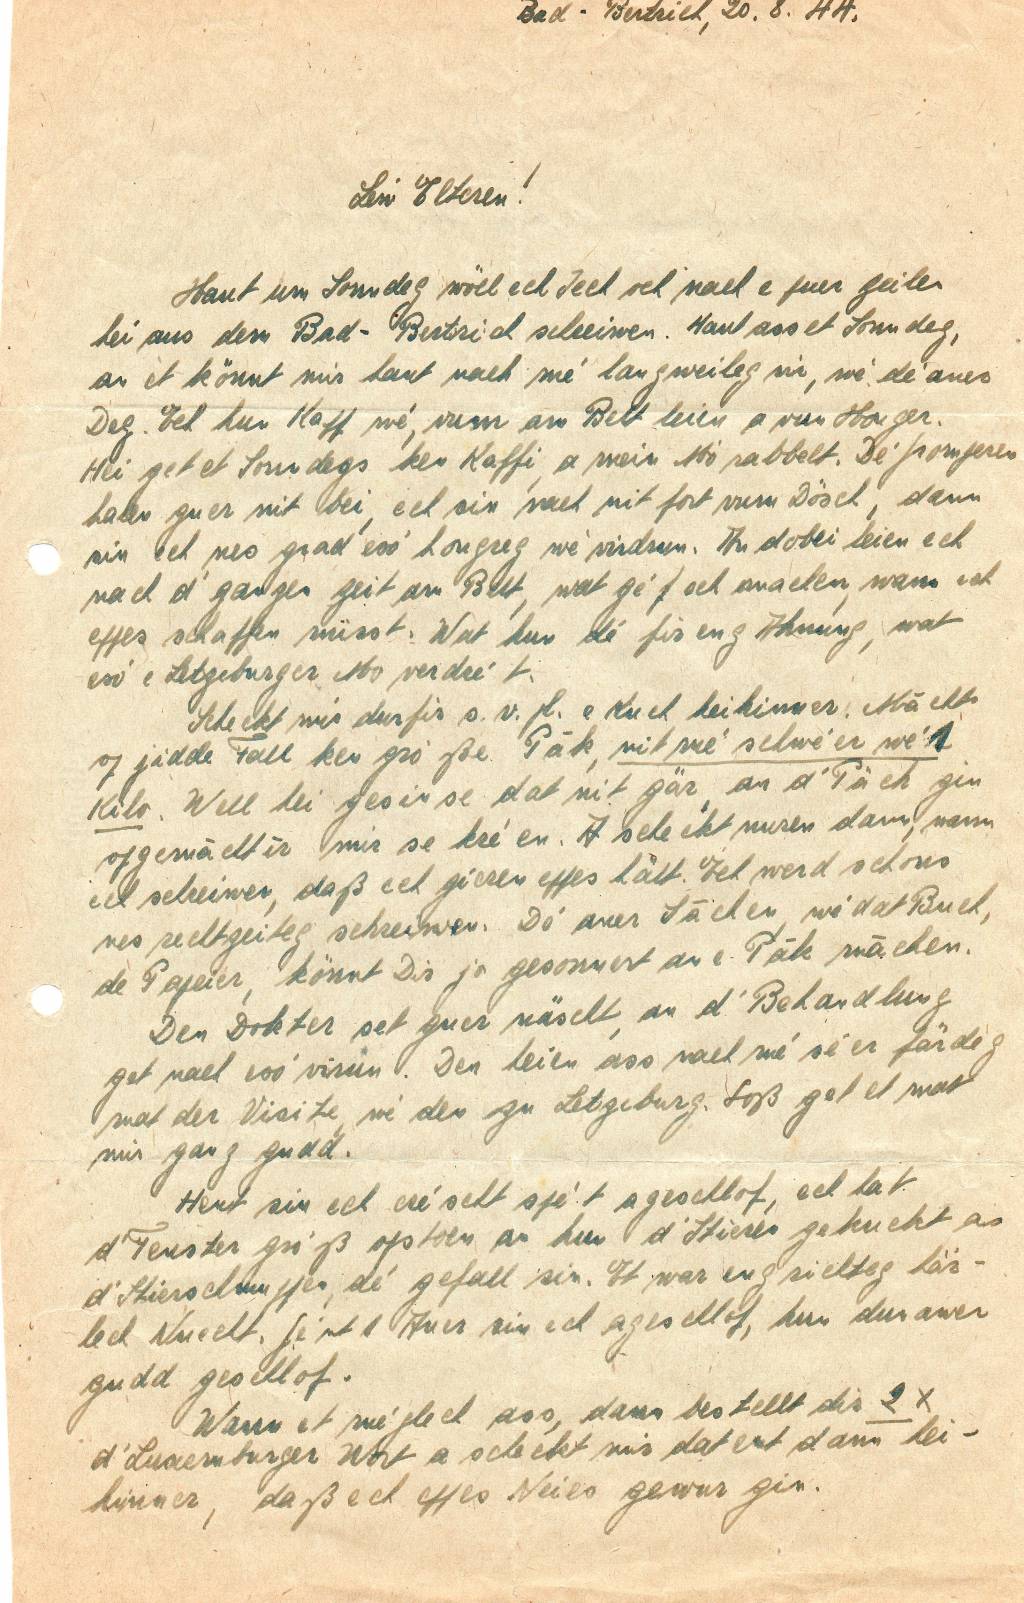 Bad-Bertrich, 20. 8. 44.
Leiw Elteren!
Haut um Sonndeg wöll ech Iech och nach e puer Zeilen
hei aus dem Bad-Bertrich schreiwen. Haut ass et Sonndeg,
an et könnt mir haut nach mé langweileg vir, wé dé aner
Deg. Ech hun Kaff mé, vum am Bett leien a vun Honger.
Hei get et Sonndegs ken Kaffi, a mein Mo rabbelt. Dé Gromperen
halen guer nit bei, ech sin nach nit fort vum Dösch, dann
sin ech nes grad esó hongreg wé virdrun. An dobei leien ech
nach d'ganzen Zeit am Bett, wat géf ech maachen, wann ech
eppes schaffen misst. Wat hun dé fir eng Ahnung, wat
esó e Letzeburger Mo verdrét.
Scheckt mir durfir s. v. pl. e Kuch heihinner. Mächt
op jidde Fall ken gróße Päk, nit mé schwéier wé 1
Kilo. Well hei gesin se dat nit gär, an d'Päck gin
opgemächt ir mir se kréen. A scheckt nuren dann, wann
ech schreiwen, daß ech gieren eppes hätt. Ech werd schons
nes rechtzeiteg schreiwen. Dó aner Sächen, wé dat Buch,
de Papeier, könnt Dir jo gesonnert an e Päk mächen.
Den Dokter set guer näischt, an d'Behandlung
get nach esó virun. Den heien ass nach mé séier färdeg
mat der Visite, wé den zu Letzeburg. Soß get et mat
mir ganz gudd.
Hent sin ech eréischt spét ageschlof, ech hat
d'Fenster gróß opstoen an hun d'Stieren gekuckt an
d'Stierschnuppen, dé gefall sin. Et war eng richteg här-
lech Nuecht. Géint 1 Auer sin ech ageschlof, hun dunawer
gudd geschlof.
Wann et méglech ass, dann bestellt dir 2 X
d'Luxemburger Wort a scheckt mir dat ent dann hei-
hinner, daß ech eppes Neies gewuer gin.